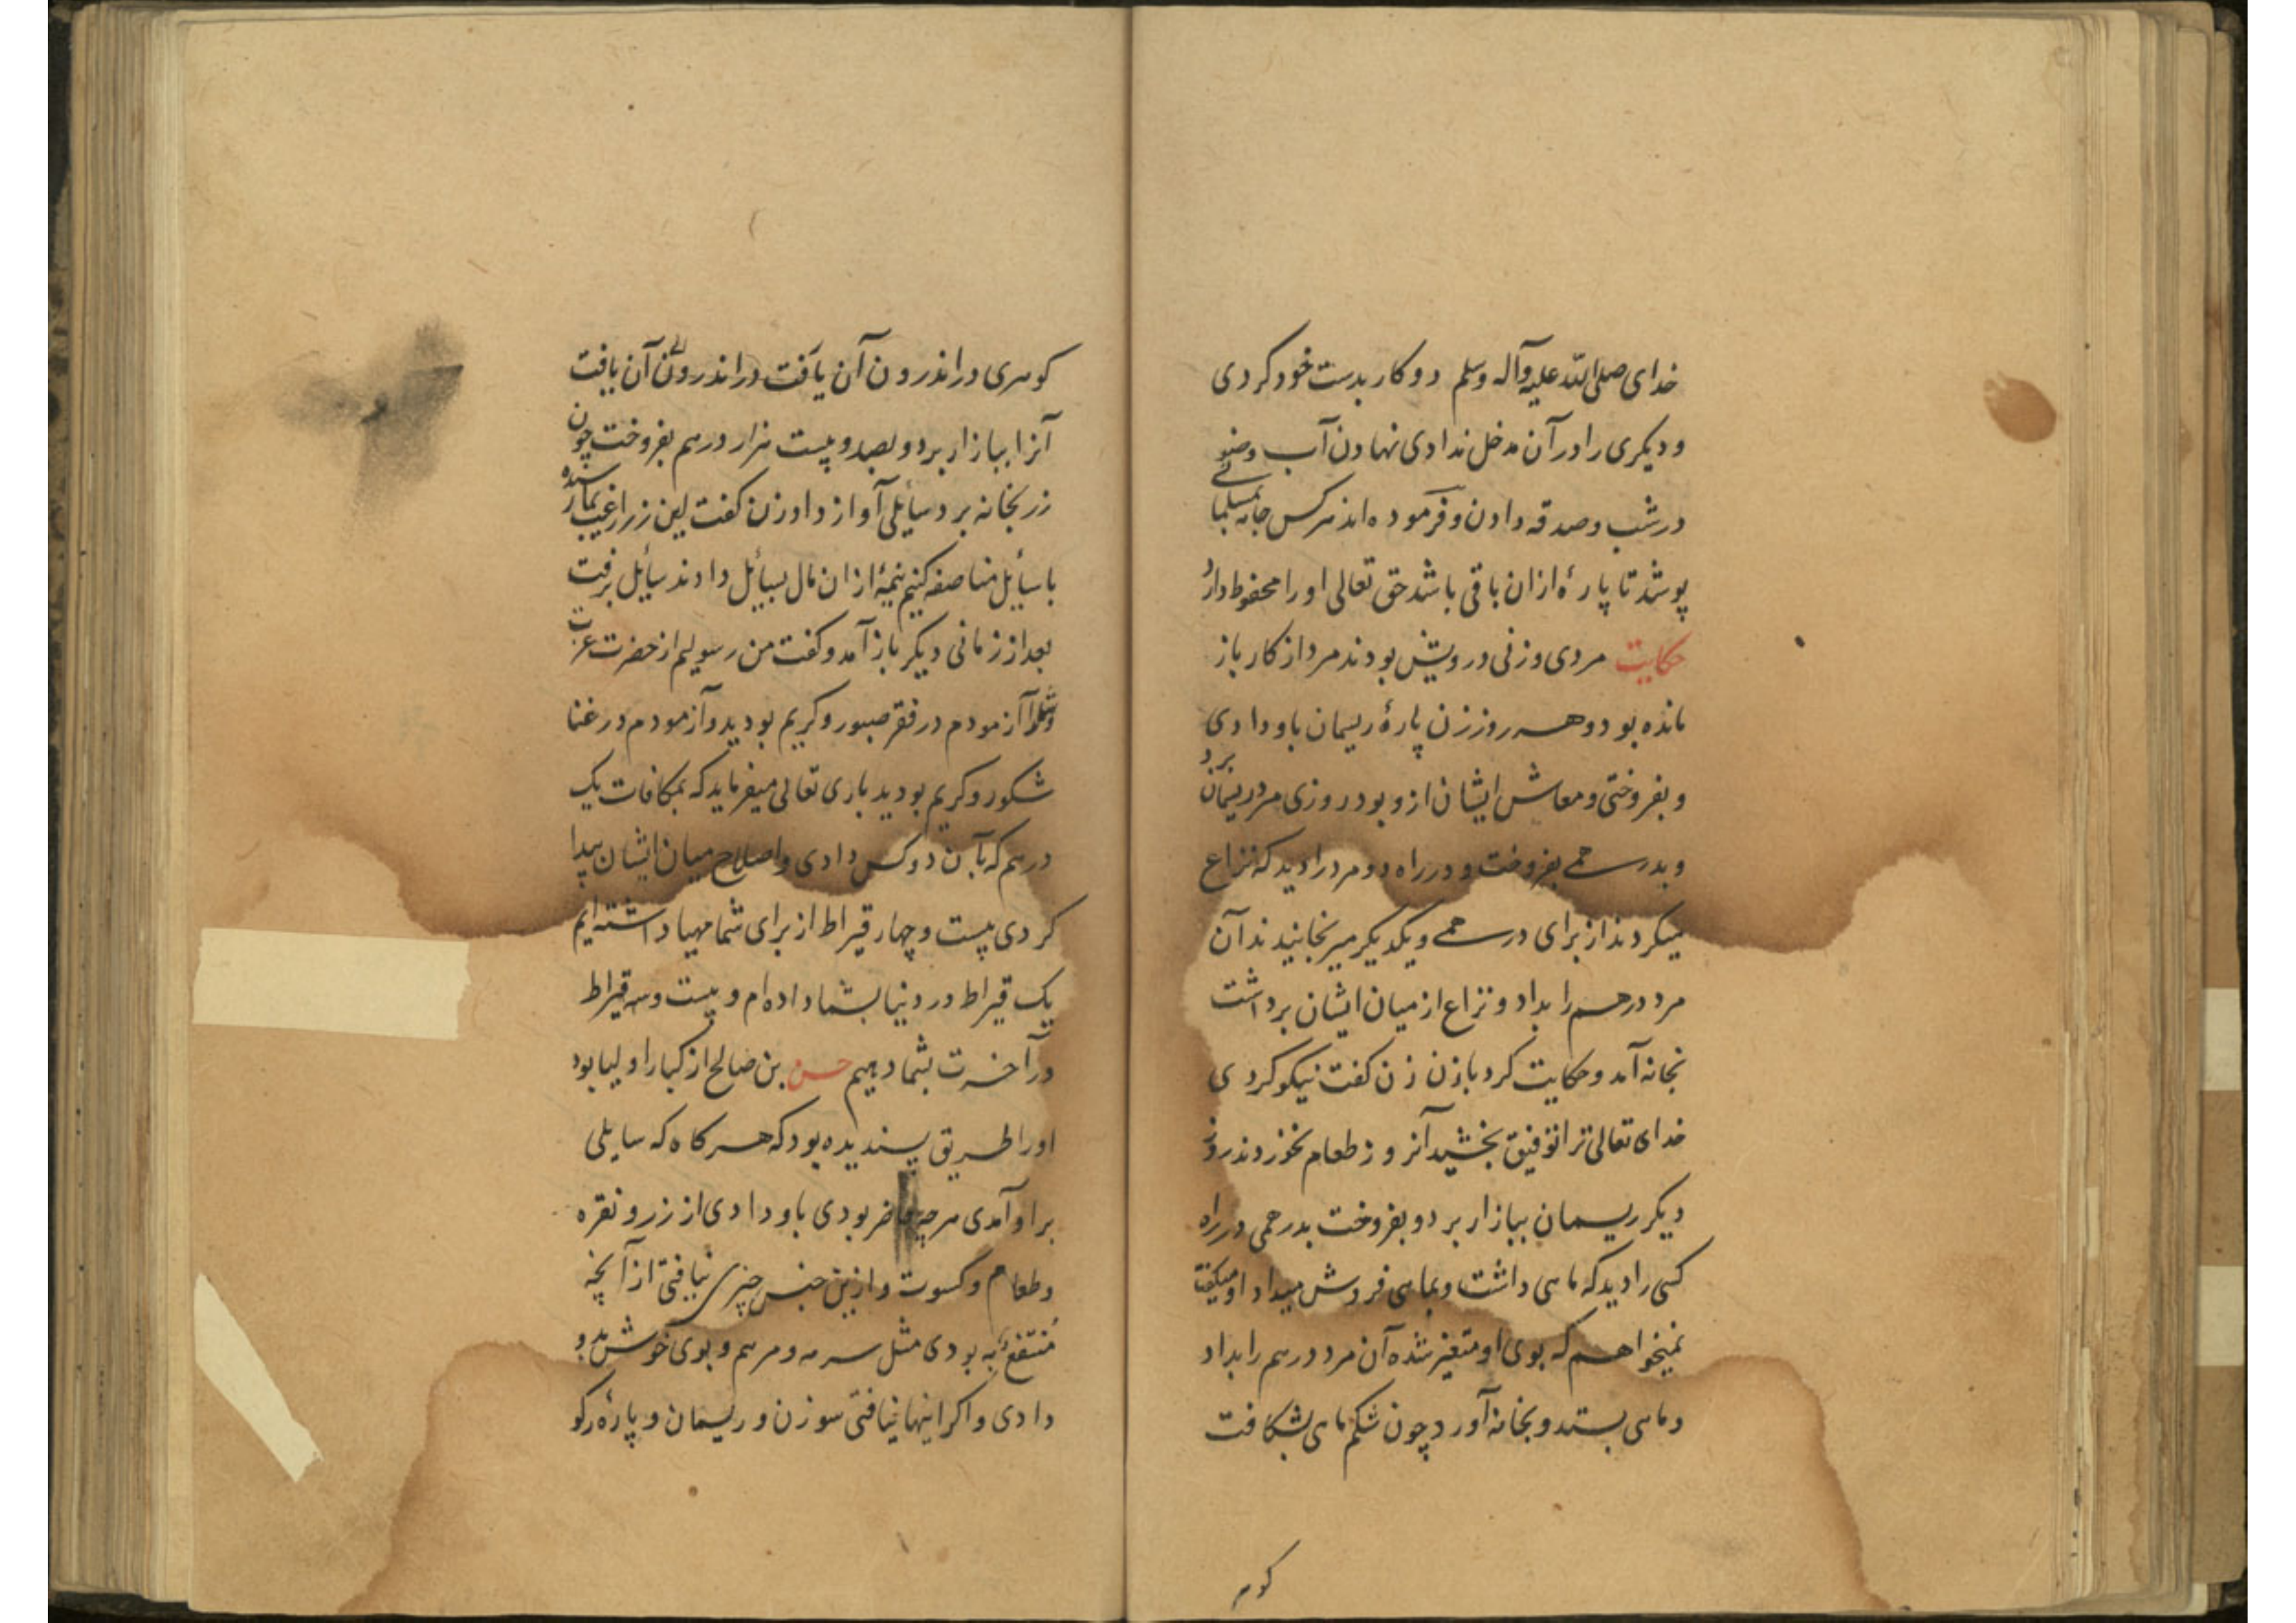 خدای صلی الله علیه وآله وسلم دو کار بدست خود کردی
و دیکری را در آن مدخل ندادی نهادن آب وضو
در شب و صدقه دادن و فرموده اند هر کس جامه بمسلمانے
پوشد تا پارهٔ ازان باقی باشد حق تعالی او را محفوظ دارد
حکایت مردی و زنی درویش بودند مرد از کار باز
مانده بود و هر روز زن پارهٔ ریسمان باو دادی
و بفروختی و معاش ایشان ازو بود روزی مرد ریسمان برد
و بدرهمے بفروخت و در راه دو مرد را دید که نزاع
میکردند از برای درهمے و یکدیکر میرنجانیدند آن
مرد درهم را بداد و نزاع از میان ایشان برداشت
بخانه آمد و حکایت کرد با زن زن کفت نیکو کردی
خدای تعالی ترا توفیق بخشید آنروز طعام نخوردند روز
دیکر ریسمان ببازار برد و بفروخت بدرهمی در راه
کسی را دید که ماهی داشت و بماهی فروش میداد او میکفت
نمیخواهم که بوی او متغیر شده آن مرد درهم را بداد
و ماهی بستد و بخانه آورد چون شکم ماهی بشکافت
کوهر
کوهری در اندرون آن یافت در اندرون آن یافت
آنرا ببازار برد و بصد و بیست هزار درهم بفروخت چون
زر بخانه برد سایلی آواز داد زن کفت این زر از غیب بما رسیده
با سایل مناصفه کنیم نیمهٔ ازان مال بسایل دادند سایل برفت
بعد از زمانی دیکر باز آمد و کفت من رسولیم از حضرت عزت
و شما را آزمودم در فقر صبور و کریم بودید و آزمودم در غنا
شکور و کریم بودید باری تعالی میفرماید که بمکافات یک
درهم که بآن دو کس دادی و اصلاح میان ایشان پیدا
کردی بیست و چهار قیراط از برای شما مهیا داشته ایم
یک قیراط در دنیا بشما داده ام و بیست و سه قیراط
در آخرت بشما دهیم حسن بن صالح از کبار اولیا بود
او را طریق پسندیده بود که هر کاه که سایلی
بر او آمدی هر چه حاضر بودی باو دادی از زر و نقره
و طعام و کسوت و ازین جنس چیزی نیافتی از آنچه
منتفع به بودی مثل سرمه و مرهم و بوی خوش بدو
دادی و اکر اینها نیافتی سوزن و ریسمان و پارهٔ رکو